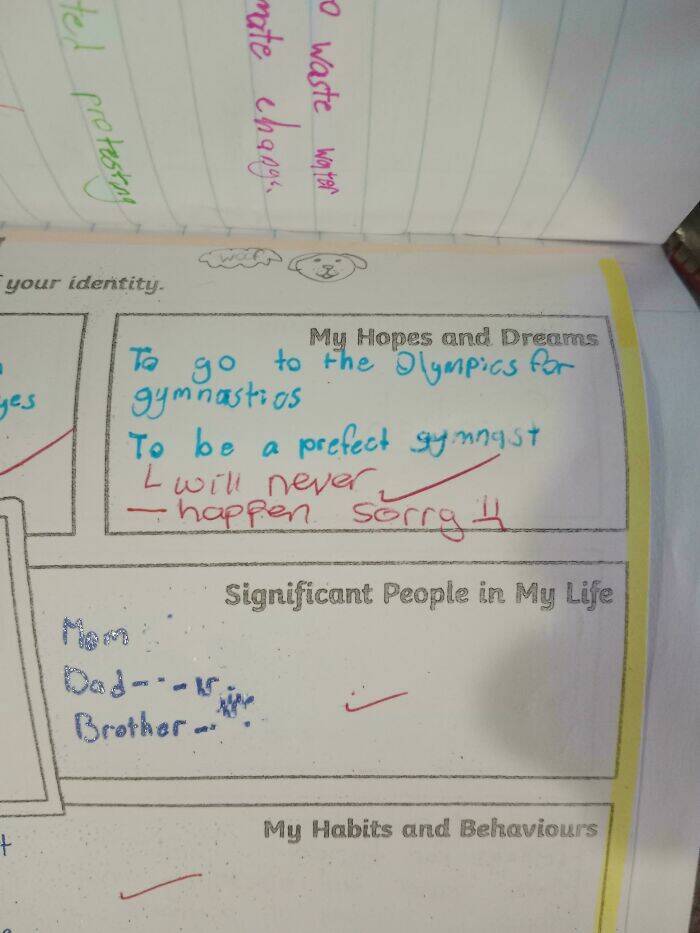 o waste water
mate change.
ted protesting
woof
your identity.
yes
My Hopes and Dreams
To go to the Olympics for
gymnastics
To be a prefect gymnast
will never
happen sorry
Significant People in My Life
Mom
Dad
Brother
My Habits and Behaviours